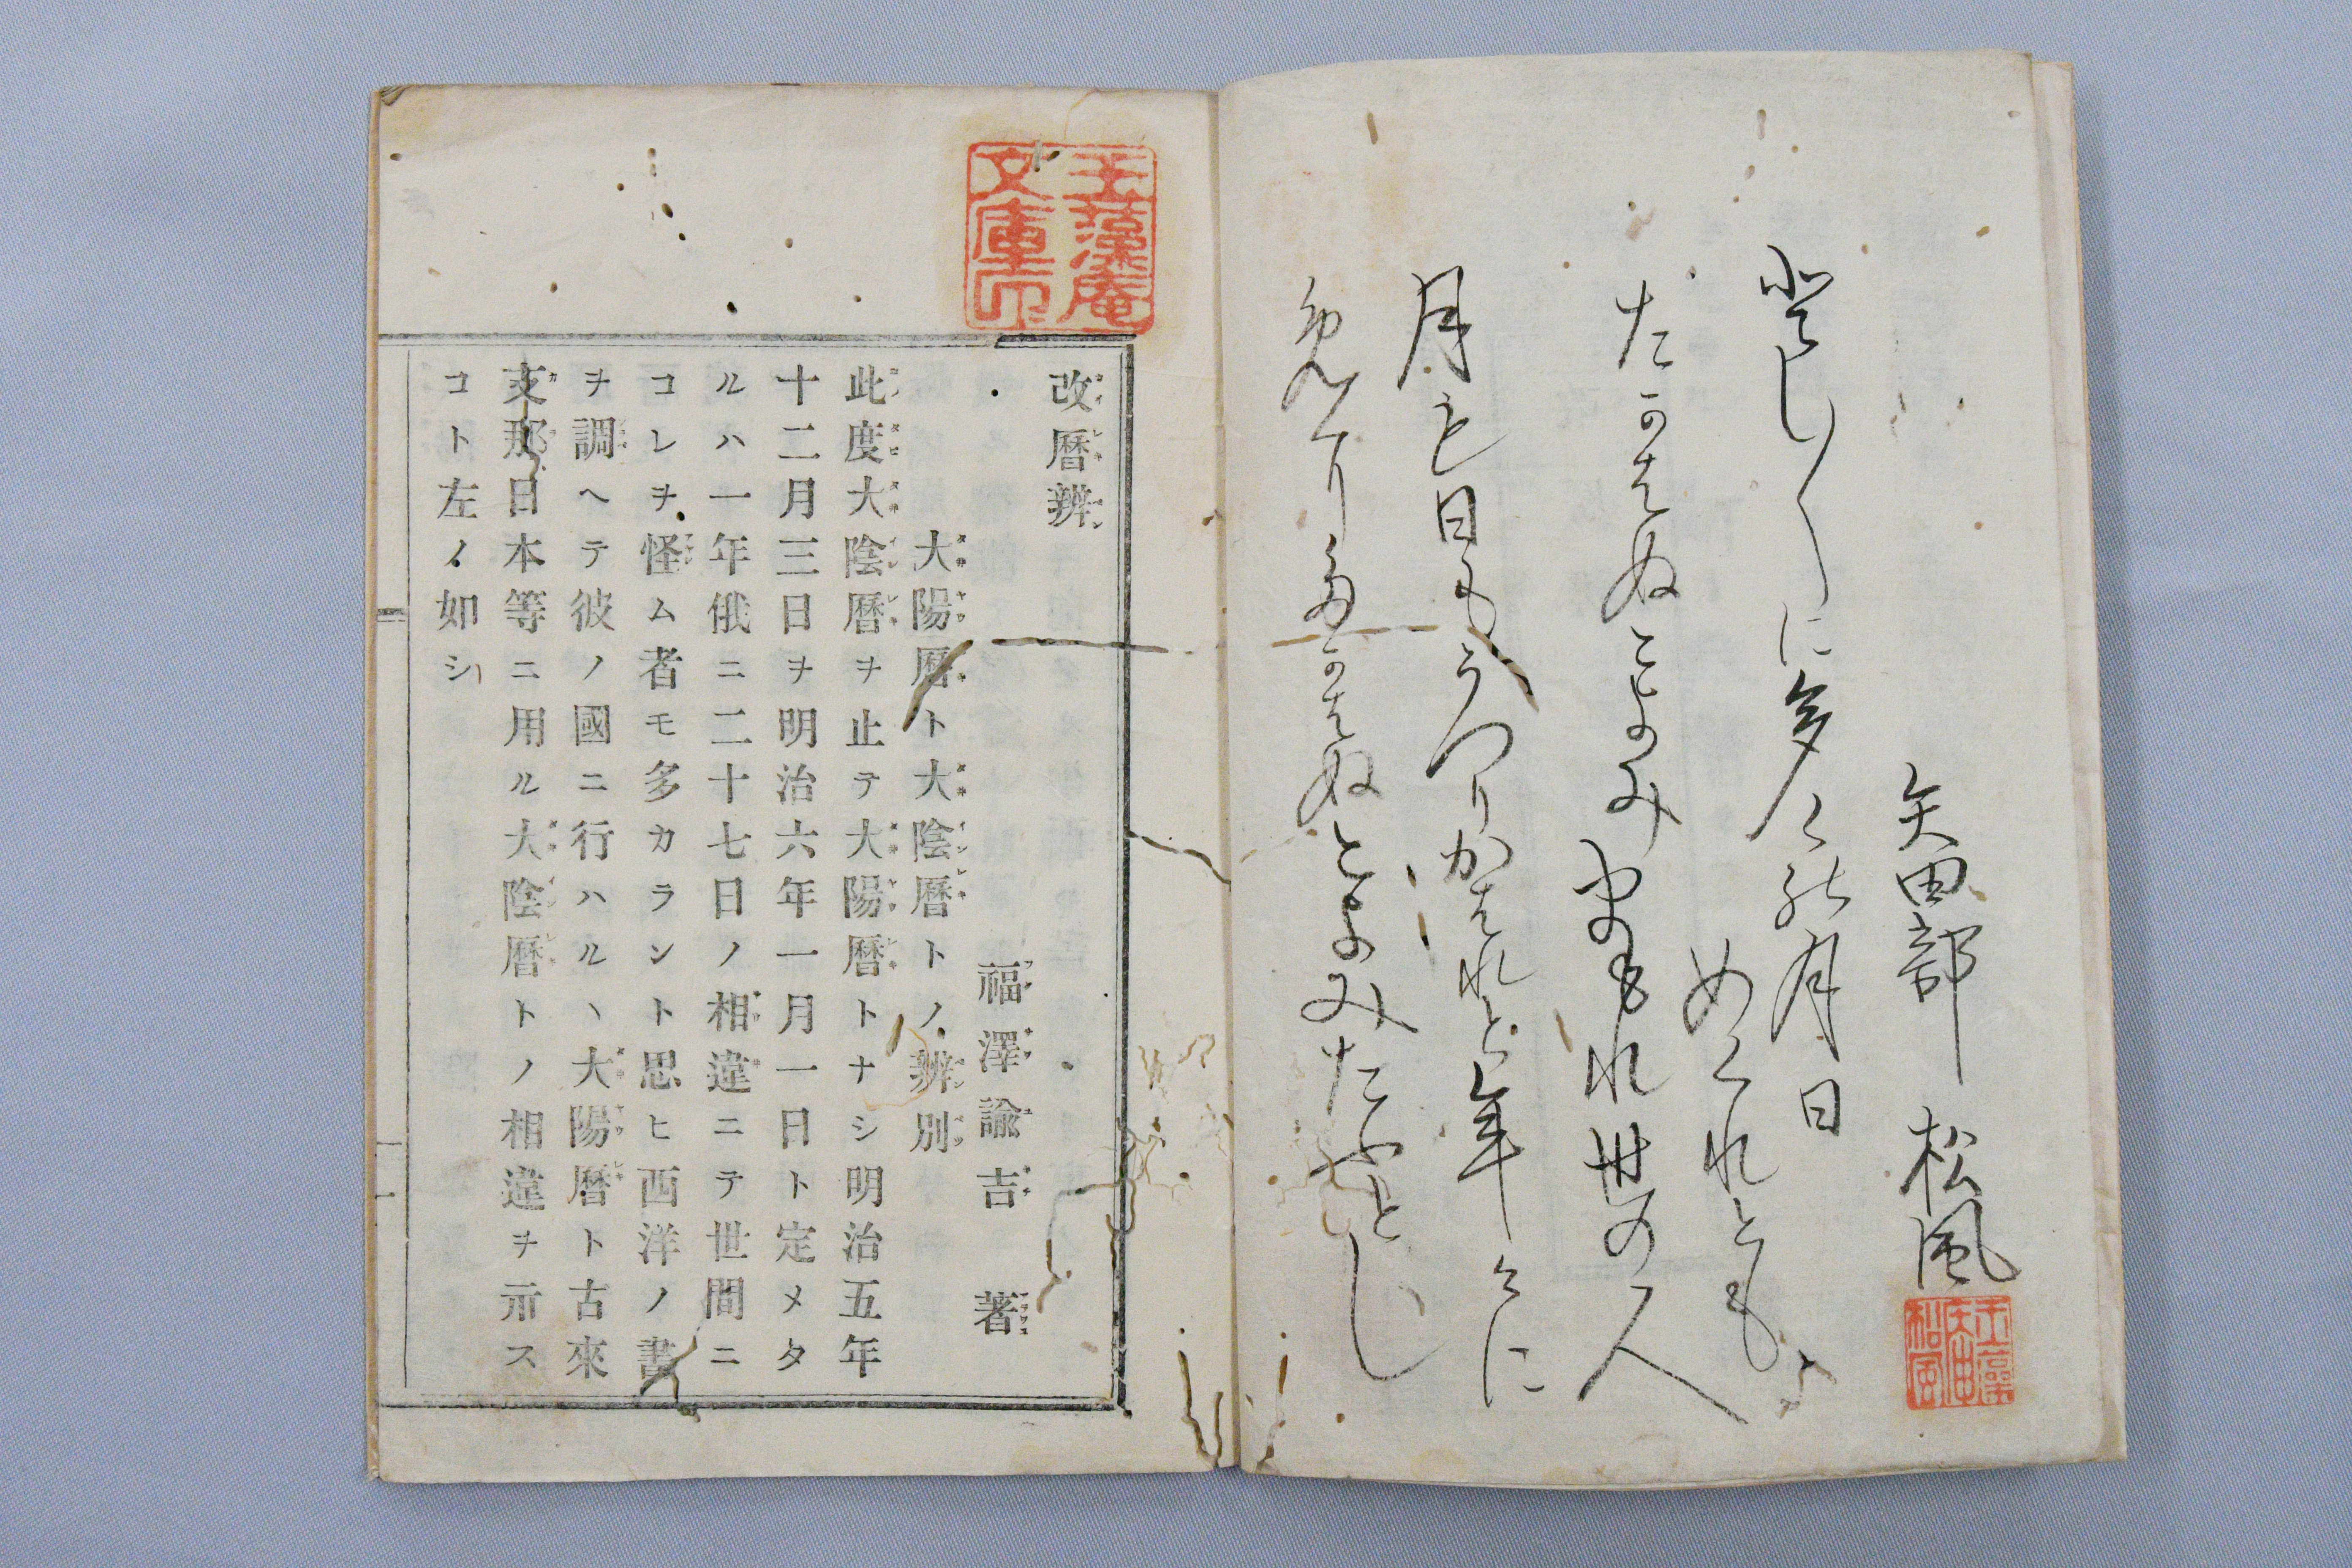 矢田部 松風
登し〳〵に多くの月日
めくれとも
たかはぬこよみまもれ世の人
月も日もうつりかはれと年〳〵に
免くりたかはぬこよみたふとし
玉藻庵
文庫印
改曆辨
福澤諭吉 著
大陽曆ト大陰曆トノ辨別
此度大陰曆ヲ止テ大陽曆トナシ明治五年
十二月三日ヲ明治六年一月一日ト定メタ
ルハ一年俄ニ二十七日ノ相違ニテ世間ニ
コレヲ怪ム者モ多カラント思ヒ西洋ノ書
ヲ調ヘテ彼ノ國ニ行ハルヽ大陽曆ト古來
支那日本等ニ用ル大陰曆トノ相違ヲ示ス
コト左ノ如シ
一